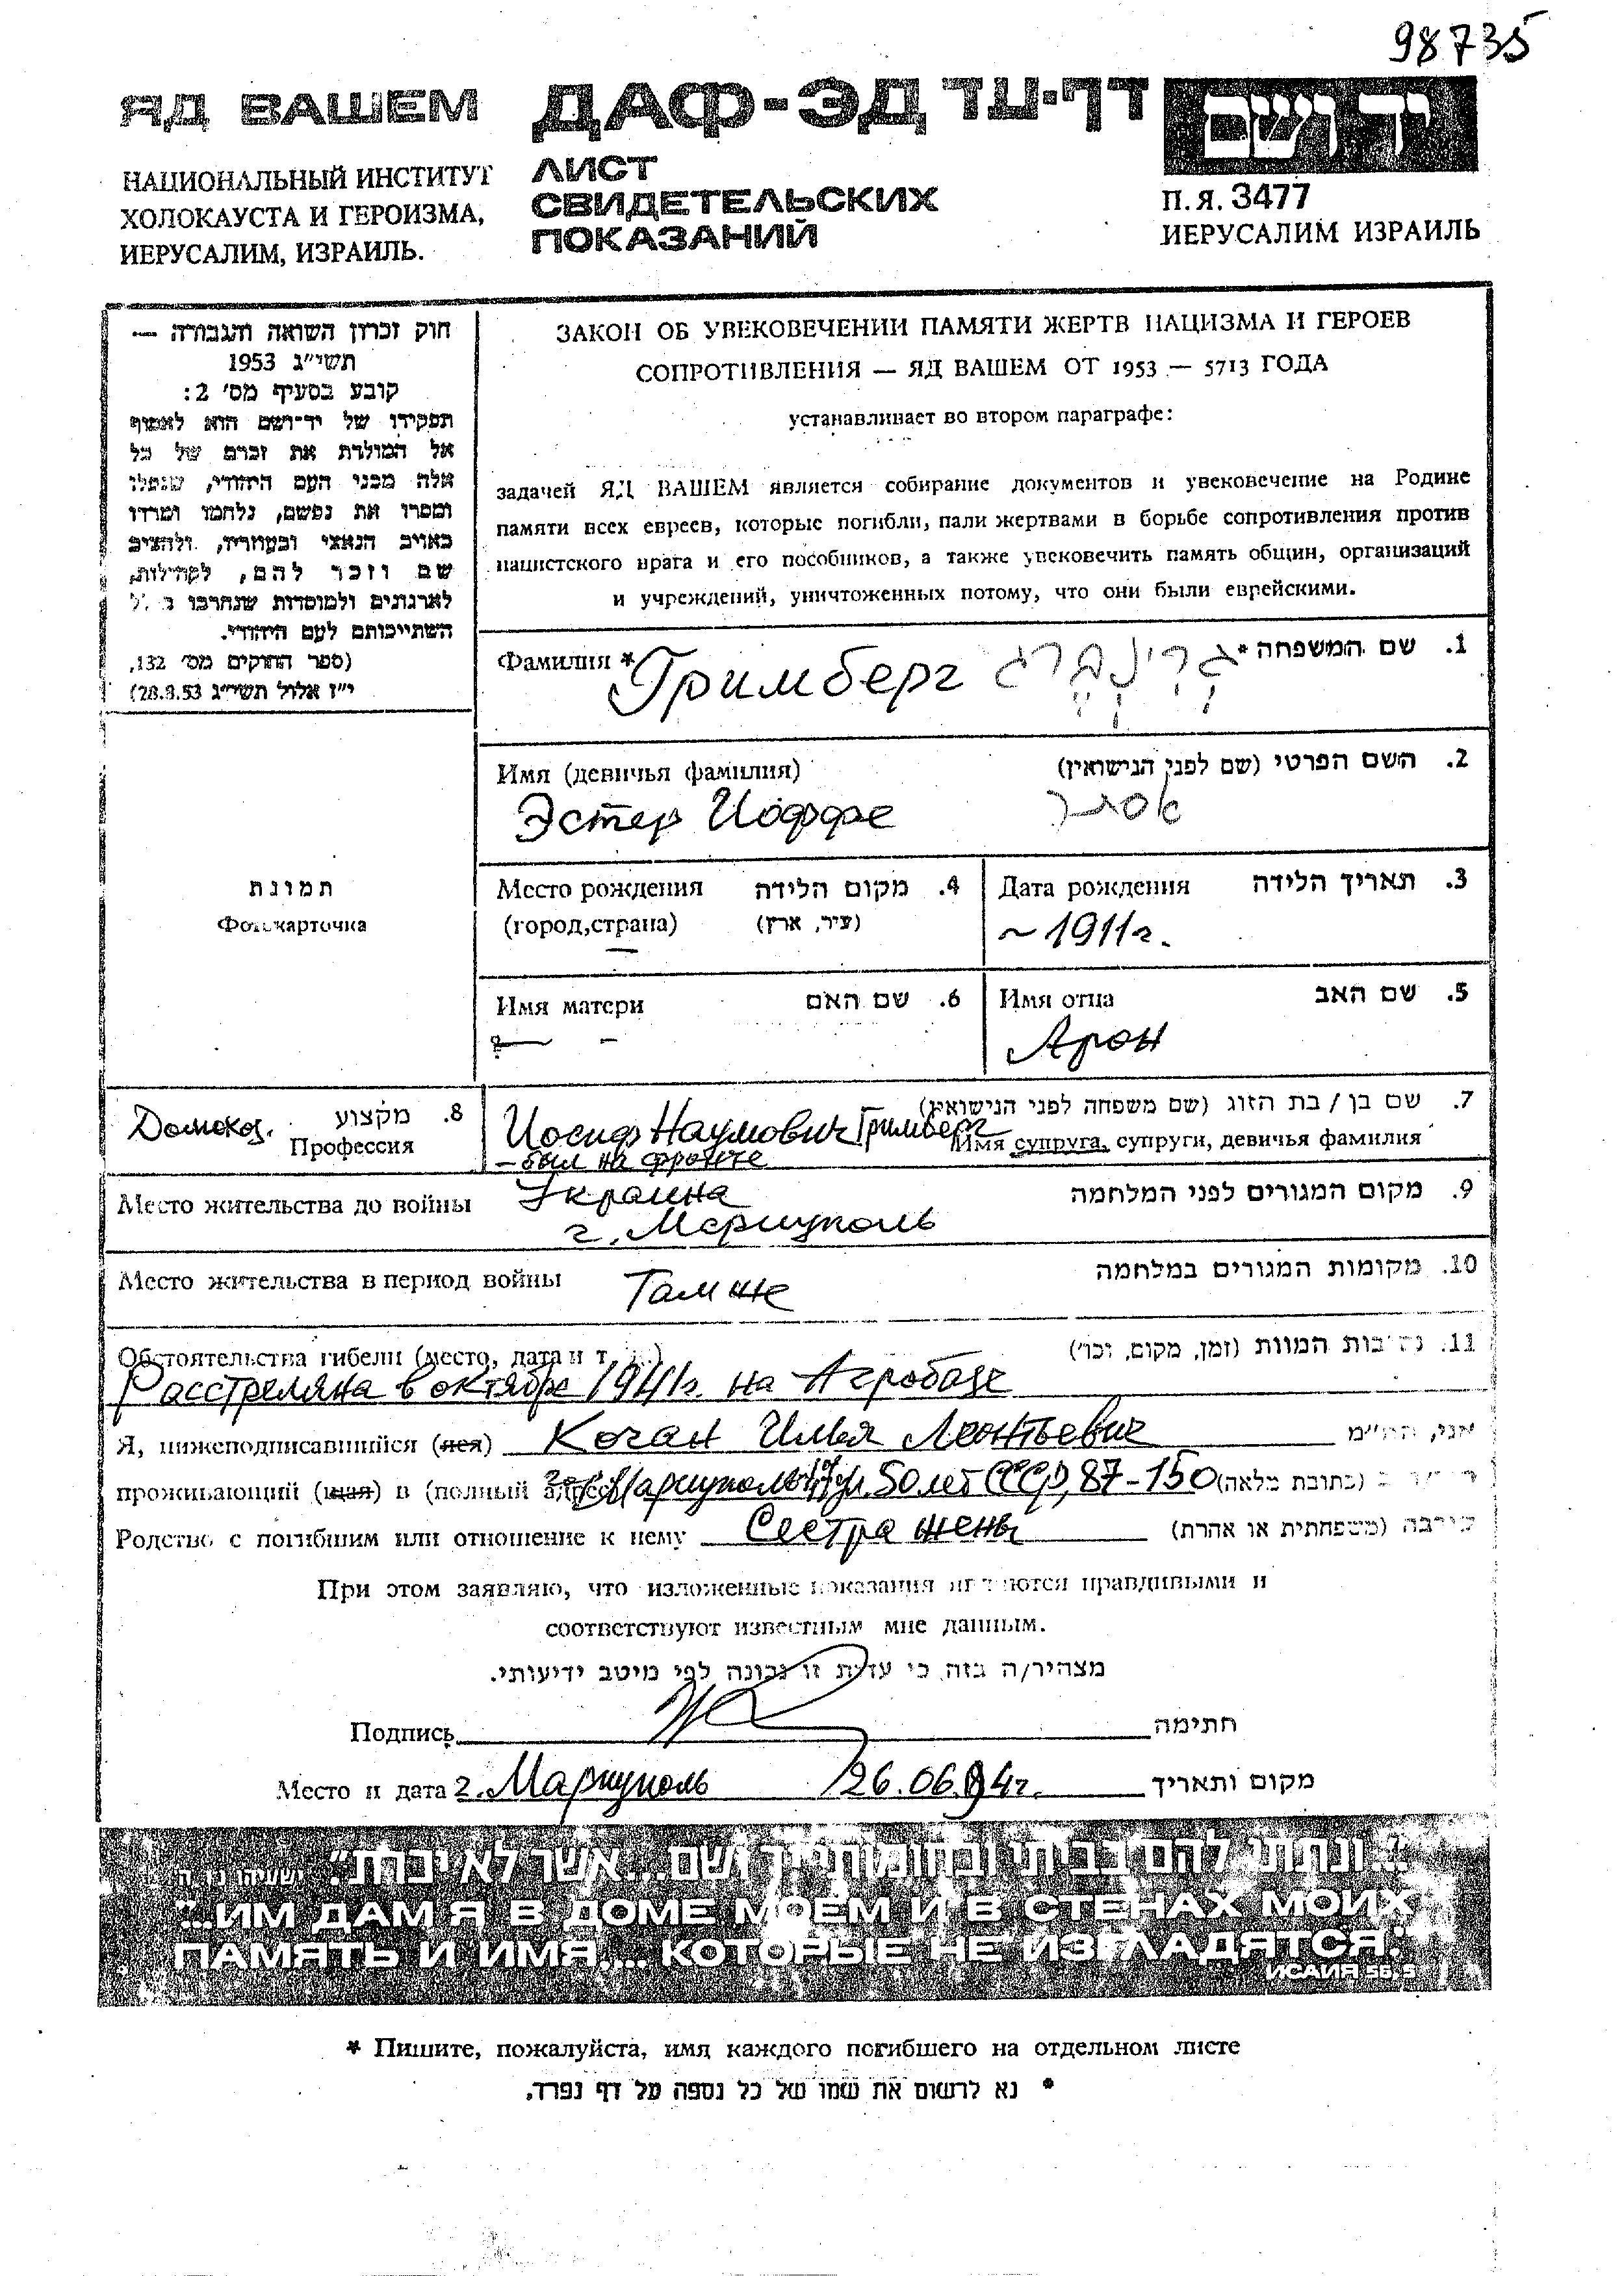 98735
ЯД ВАШЕМ
НАЦИОНАЛЬНЫЙ ИНСТИТУТ
ХОЛОКАУСТА И ГЕРОИЗМА,
ИЕРУСАЛИМ, ИЗРАИЛЬ.
ДАФ-ЭД דף-עד
ЛИСТ
СВИДЕТЕЛЬСКИХ
ПОКАЗАНИЙ
יד ושם
П.Я. 3477
ИЕРУСАЛИМ ИЗРАИЛЬ
חוק זכרון השואה והגבורה —
תשי״ג 1953
קובע בסעיף מס׳ 2:
תפקידו של יד-ושם הוא לאסוף
אל המולדת את זכרם של כל
אלה מבני העם היהודי, שנפלו
ומסרו את נפשם, נלחמו ומרדו
באויב הנאצי ובעוזריו, ולהציב
שם וזכר להם, לקהילות,
לארגונים ולמוסדות שנחרבו
השתייכותם לעם היהודי.
(ספר החוקים מס׳ 132,
י״ז אלול תשי״ג 28.8.53)
ЗАКОН ОБ УВЕКОВЕЧЕНИИ ПАМЯТИ ЖЕРТВ НАЦИЗМА И ГЕРОЕВ
СОПРОТИВЛЕНИЯ — ЯД ВАШЕМ ОТ 1953 — 5713 ГОДА
устанавливает во втором параграфе:
задачей ЯД ВАШЕМ является собирание документов и увековечение на Родине
памяти всех евреев, которые погибли, пали жертвами в борьбе сопротивления против
нацистского врага и его пособников, а также увековечить память общин, организаций
и учреждений, уничтоженных потому, что они были еврейскими.
Фамилия * Гримберг גרינברג 1. שם המשפחה*
Имя (девичья фамилия) 2. השם הפרטי (שם לפני הנישואין)
Эстер Иоффе אסתר
תמונת
Фотокарточка
Место рождения 4. מקום הלידה
(город,страна) (עיר, ארץ)
—
Дата рождения 3. תאריך הלידה
~ 1911г.
Имя матери 6. שם האם
— –
Имя отца 5. שם האב
Арон
8. מקצוע
Домохоз. Профессия
7. שם בן / בת הזוג (שם משפחה לפני הנישואין)
Иосиф Наумович Гримберг Имя супруга, супруги, девичья фамилия
— был на фронте
Место жительства до войны Украина 9. מקום המגורים לפני המלחמה
г. Мариуполь
Место жительства в период войны Там же 10. מקומות המגורים במלחמה
Обстоятельства гибели (место, дата и т. д.) 11. נסיבות המוות (זמן, מקום, וכו׳)
Расстреляна в октябре 1941г. на Агробазе
Я, нижеподписавшийся (аяся) Кочан Илья Леонтьевич אני, הח״מ
проживающий (щая) в (полный адрес) г. Мариуполь ул. 50 лет СССР, 87-150 (כתובת מלאה)
Родство с погибшим или отношение к нему Сестра жены קירבה (משפחתית או אחרת)
При этом заявляю, что изложенные показания являются правдивыми и
соответствуют известным мне данным.
מצהיר/ה בזה כי עדות זו נכונה לפי מיטב ידיעותי.
Подпись חתימה
Место и дата г. Мариуполь 26.06.94г. מקום ותאריך
"...ונתתי להם בביתי ובחומותי יד ושם...אשר לא יכרת". ישעיהו נו, ה
"...ИМ ДАМ Я В ДОМЕ МОЕМ И В СТЕНАХ МОИХ
ПАМЯТЬ И ИМЯ.... КОТОРЫЕ НЕ ИЗГЛАДЯТСЯ."
ИСАИЯ 56, 5
* Пишите, пожалуйста, имя каждого погибшего на отдельном листе
* נא לרשום את שמו של כל נספה על דף נפרד.